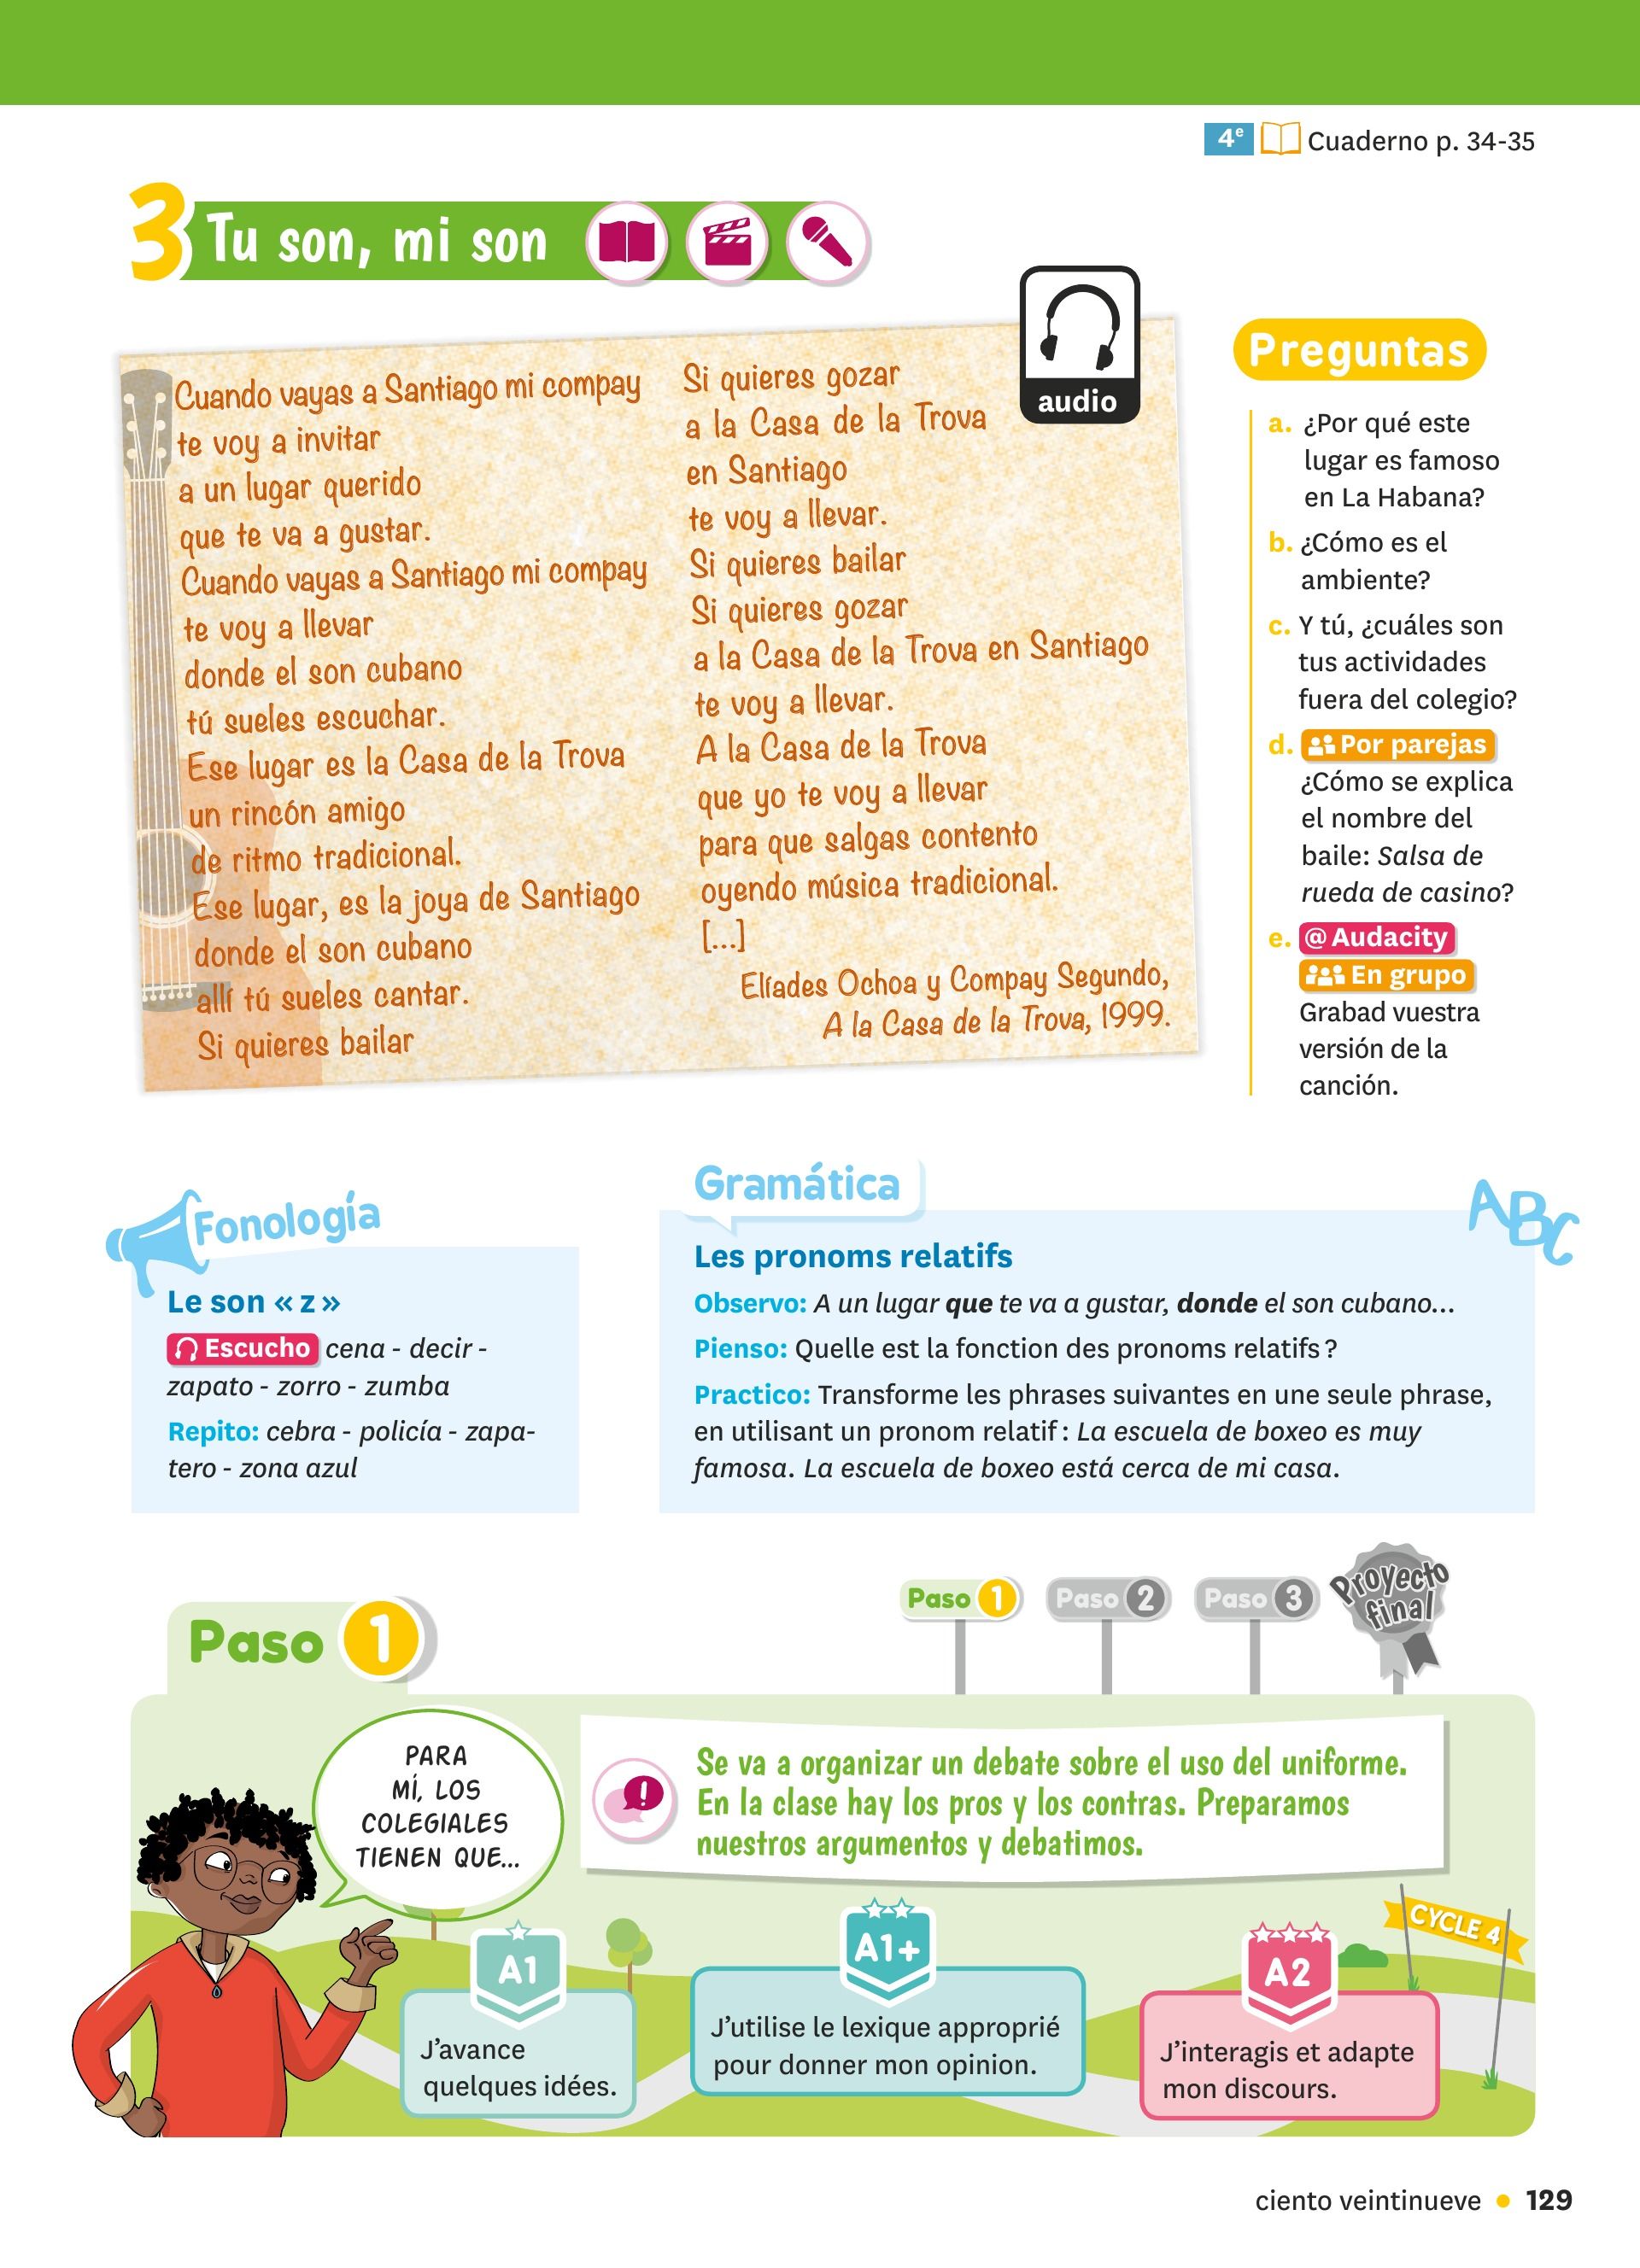 4e Cuaderno p. 34-35
3 Tu son, mi son
audio
Cuando vayas a Santiago mi compay
te voy a invitar
a un lugar querido
que te va a gustar.
Cuando vayas a Santiago mi compay
te voy a llevar
donde el son cubano
tú sueles escuchar.
Ese lugar es la Casa de la Trova
un rincón amigo
de ritmo tradicional.
Ese lugar, es la joya de Santiago
donde el son cubano
allí tú sueles cantar.
Si quieres bailar
Si quieres gozar
a la Casa de la Trova
en Santiago
te voy a llevar.
Si quieres bailar
Si quieres gozar
a la Casa de la Trova en Santiago
te voy a llevar.
A la Casa de la Trova
que yo te voy a llevar
para que salgas contento
oyendo música tradicional.
[...]
Elíades Ochoa y Compay Segundo,
A la Casa de la Trova, 1999.
Preguntas
a. ¿Por qué este
lugar es famoso
en La Habana?
b. ¿Cómo es el
ambiente?
c. Y tú, ¿cuáles son
tus actividades
fuera del colegio?
d. Por parejas
¿Cómo se explica
el nombre del
baile: Salsa de
rueda de casino?
e. @ Audacity
En grupo
Grabad vuestra
versión de la
canción.
Fonología
Le son « z »
Escucho cena - decir -
zapato - zorro - zumba
Repito: cebra - policía - zapa-
tero - zona azul
Gramática
ABC
Les pronoms relatifs
Observo: A un lugar que te va a gustar, donde el son cubano...
Pienso: Quelle est la fonction des pronoms relatifs ?
Practico: Transforme les phrases suivantes en une seule phrase,
en utilisant un pronom relatif : La escuela de boxeo es muy
famosa. La escuela de boxeo está cerca de mi casa.
Paso 1
Paso 2
Paso 3
Proyecto
final
Paso 1
PARA
MÍ, LOS
COLEGIALES
TIENEN QUE...
!
Se va a organizar un debate sobre el uso del uniforme.
En la clase hay los pros y los contras. Preparamos
nuestros argumentos y debatimos.
A1
J'avance
quelques idées.
A1+
J'utilise le lexique approprié
pour donner mon opinion.
A2
J'interagis et adapte
mon discours.
CYCLE 4
ciento veintinueve • 129